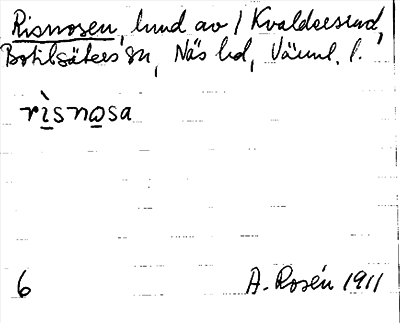 Risnosen, lund av / Kvaldersrud,
Botilsäters sn, Näs hd, Värml. l.
rìsnosa
6 A. Rosén 1911